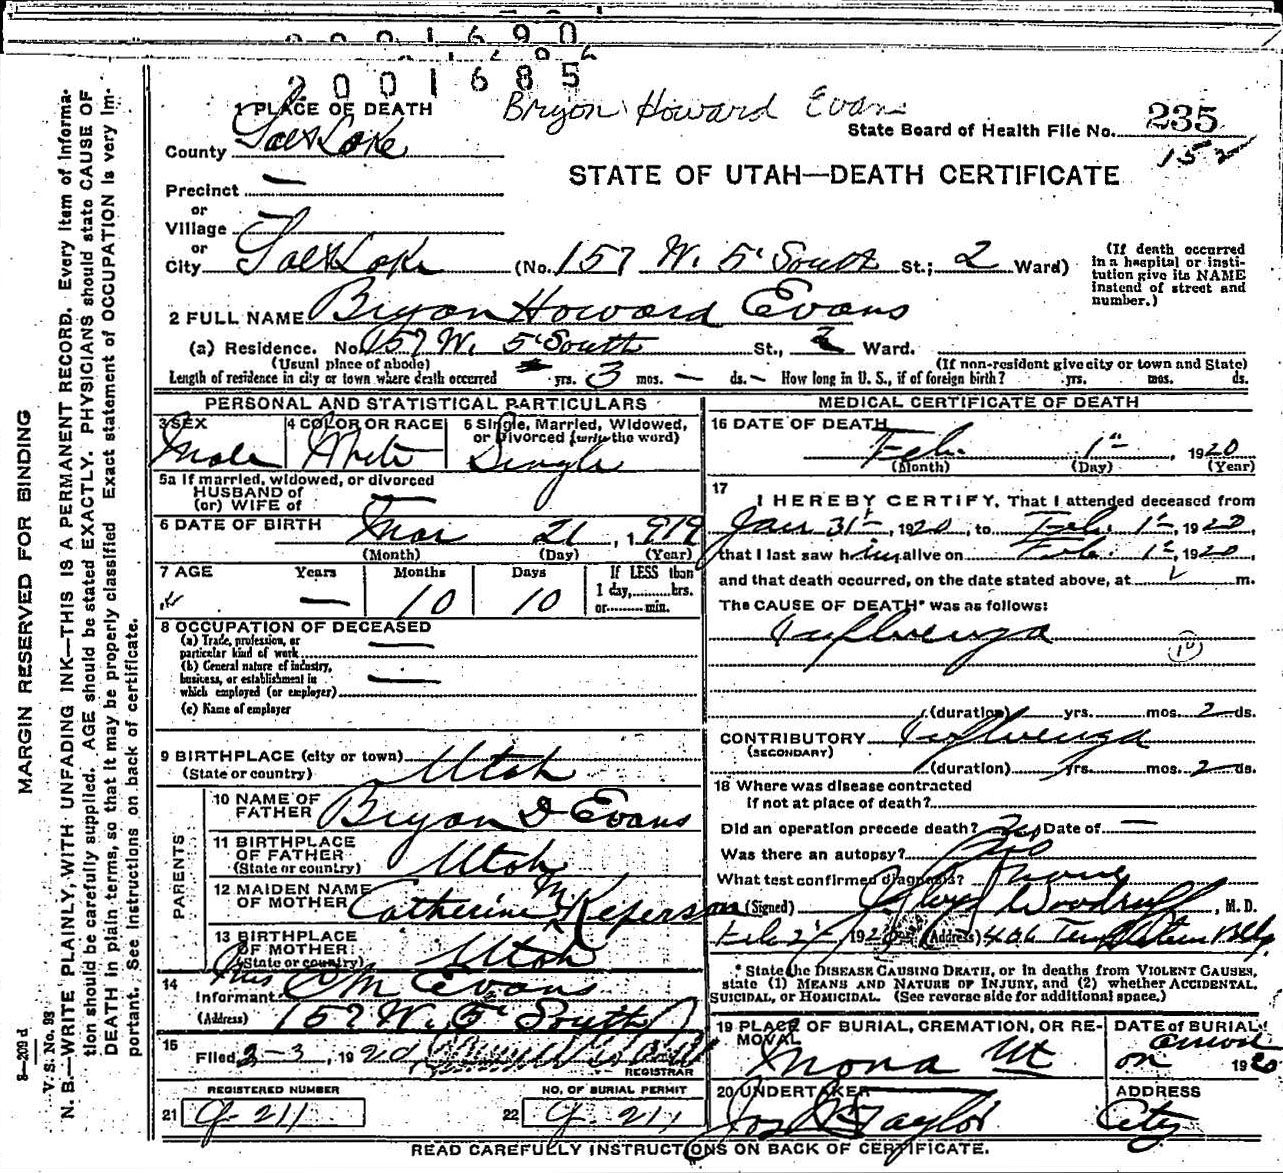 2001690
2001685
Bryon Howard Evans
1 PLACE OF DEATH
State Board of Health File No. 235
County Salt Lake
152
STATE OF UTAH—DEATH CERTIFICATE
Precinct —
or
Village —
or
City Salt Lake (No. 157 W. 5' South St.; 2 Ward)
(If death occurred in a hospital or insti-
tution give its NAME
instead of street and
number.)
2 FULL NAME Bryon Howard Evans
(a) Residence. No. 157 W. 5' South St., 2 Ward.
(Usual place of abode) (If non-resident give city or town and State)
Length of residence in city or town where death occurred yrs. 3 mos. — ds. — How long in U. S., if of foreign birth? yrs. mos. ds.
PERSONAL AND STATISTICAL PARTICULARS
3 SEX 4 COLOR OR RACE 5 Single, Married, Widowed,
or Divorced (write the word)
Male White Single
5a If married, widowed, or divorced
HUSBAND of
(or) WIFE of —
6 DATE OF BIRTH Mar 21, 1919
(Month) (Day) (Year)
7 AGE Years Months Days If LESS than
1 day, hrs.
or min.
— 10 10
8 OCCUPATION OF DECEASED
(a) Trade, profession, or
particular kind of work —
(b) General nature of industry,
business, or establishment in
which employed (or employer) —
(c) Name of employer
9 BIRTHPLACE (city or town)
(State or country) Utah
PARENTS
10 NAME OF
FATHER Bryon D Evans
11 BIRTHPLACE
OF FATHER
(State or country) Utah
12 MAIDEN NAME
OF MOTHER Catherine McKeferson
13 BIRTHPLACE
OF MOTHER
(State or country) Utah
14
Informant Mrs C M Evans
(Address) 157 W. 5' South
15
Filed 2-3, 1920
REGISTRAR
REGISTERED NUMBER NO. OF BURIAL PERMIT
21 G-211 22 G-211
MEDICAL CERTIFICATE OF DEATH
16 DATE OF DEATH
Feb. 1st, 1920
(Month) (Day) (Year)
17
I HEREBY CERTIFY, That I attended deceased from
Jan 31st, 1920, to Feb. 1st, 1920,
that I last saw him alive on Feb. 1st, 1920,
and that death occurred, on the date stated above, at m.
The CAUSE OF DEATH* was as follows:
Influenza
10
(duration) yrs. mos. 2 ds.
CONTRIBUTORY Influenza
(SECONDARY)
(duration) yrs. mos. 2 ds.
18 Where was disease contracted
if not at place of death?
Did an operation precede death? No Date of —
Was there an autopsy? No
What test confirmed diagnosis? None
(Signed) Woodruff, M. D.
Feb 2, 1920 (Address) 406 Templeton Bldg
* State the DISEASE CAUSING DEATH, or in deaths from VIOLENT CAUSES,
state (1) MEANS AND NATURE OF INJURY, and (2) whether ACCIDENTAL,
SUICIDAL, or HOMICIDAL. (See reverse side for additional space.)
19 PLACE OF BURIAL, CREMATION, OR RE-
MOVAL
Mona Ut
DATE of BURIAL
on 1920
20 UNDERTAKER
Jos Taylor
ADDRESS
City
READ CAREFULLY INSTRUCTIONS ON BACK OF CERTIFICATE.
MARGIN RESERVED FOR BINDING
8—209 d
V. S. No. 93
N. B.—WRITE PLAINLY, WITH UNFADING INK—THIS IS A PERMANENT RECORD. Every item of informa-
tion should be carefully supplied. AGE should be stated EXACTLY. PHYSICIANS should state CAUSE OF
DEATH in plain terms, so that it may be properly classified. Exact statement of OCCUPATION is very im-
portant. See instructions on back of certificate.